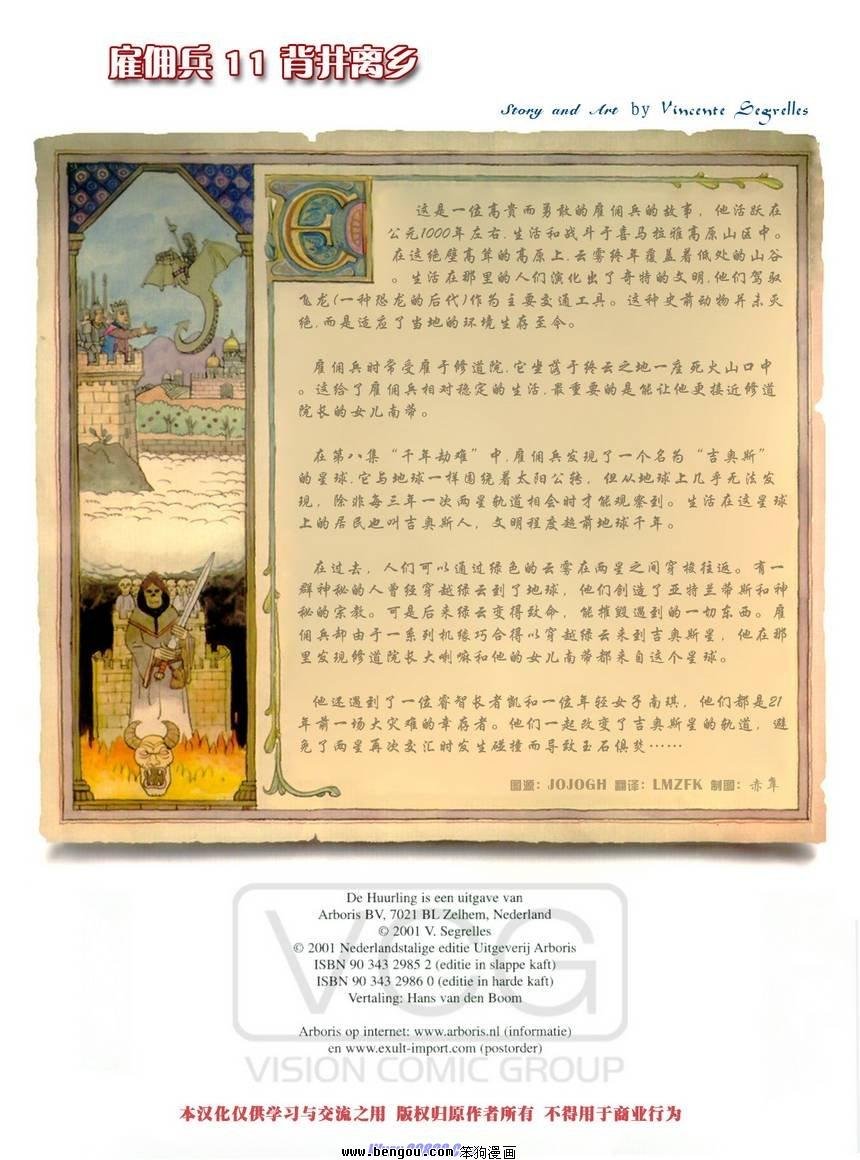 雇佣兵 11 背井离乡
Story and Art by Vincente Segrelles
E
这是一位高贵而勇敢的雇佣兵的故事，他活跃在
公元1000年左右.生活和战斗于喜马拉雅高原山区中。
在这绝壁高耸的高原上.云雾终年覆盖着低处的山谷
。生活在那里的人们演化出了奇特的文明.他们驾驭
飞龙(一种恐龙的后代)作为主要交通工具。这种史前动物并未灭
绝.而是适应了当地的环境生存至今。
雇佣兵时常受雇于修道院.它坐落于终云之地一座死火山口中
。这给了雇佣兵相对稳定的生活.最重要的是能让他更接近修道
院长的女儿南蒂。
在第八集“千年劫难”中.雇佣兵发现了一个名为“吉奥斯”
的星球.它与地球一样围绕着太阳公转，但从地球上几乎无法发
现，除非每三年一次两星轨道相会时才能观察到。生活在这星球
上的居民也叫吉奥斯人，文明程度超前地球千年。
在过去，人们可以通过绿色的云雾在两星之间穿梭往返。有一
群神秘的人曾经穿越绿云到了地球，他们创造了亚特兰蒂斯和神
秘的宗教。可是后来绿云变得致命，能摧毁遇到的一切东西。雇
佣兵却由于一系列机缘巧合得以穿越绿云来到吉奥斯星，他在那
里发现修道院长大喇嘛和他的女儿南蒂都来自这个星球。
他还遇到了一位睿智长者凯和一位年轻女子南琪，他们都是21
年前一场大灾难的幸存者。他们一起改变了吉奥斯星的轨道，避
免了两星再次交汇时发生碰撞而导致玉石俱焚……
图源：JOJOGH 翻译：LMZFK 制图：赤隼
De Huurling is een uitgave van
Arboris BV, 7021 BL Zelhem, Nederland
© 2001 V. Segrelles
© 2001 Nederlandstalige editie Uitgeverij Arboris
ISBN 90 343 2985 2 (editie in slappe kaft)
ISBN 90 343 2986 0 (editie in harde kaft)
Vertaling: Hans van den Boom
Arboris op internet: www.arboris.nl (informatie)
en www.exult-import.com (postorder)
VCG
VISION COMIC GROUP
本汉化仅供学习与交流之用 版权归原作者所有 不得用于商业行为
www.bengou.com 笨狗漫画